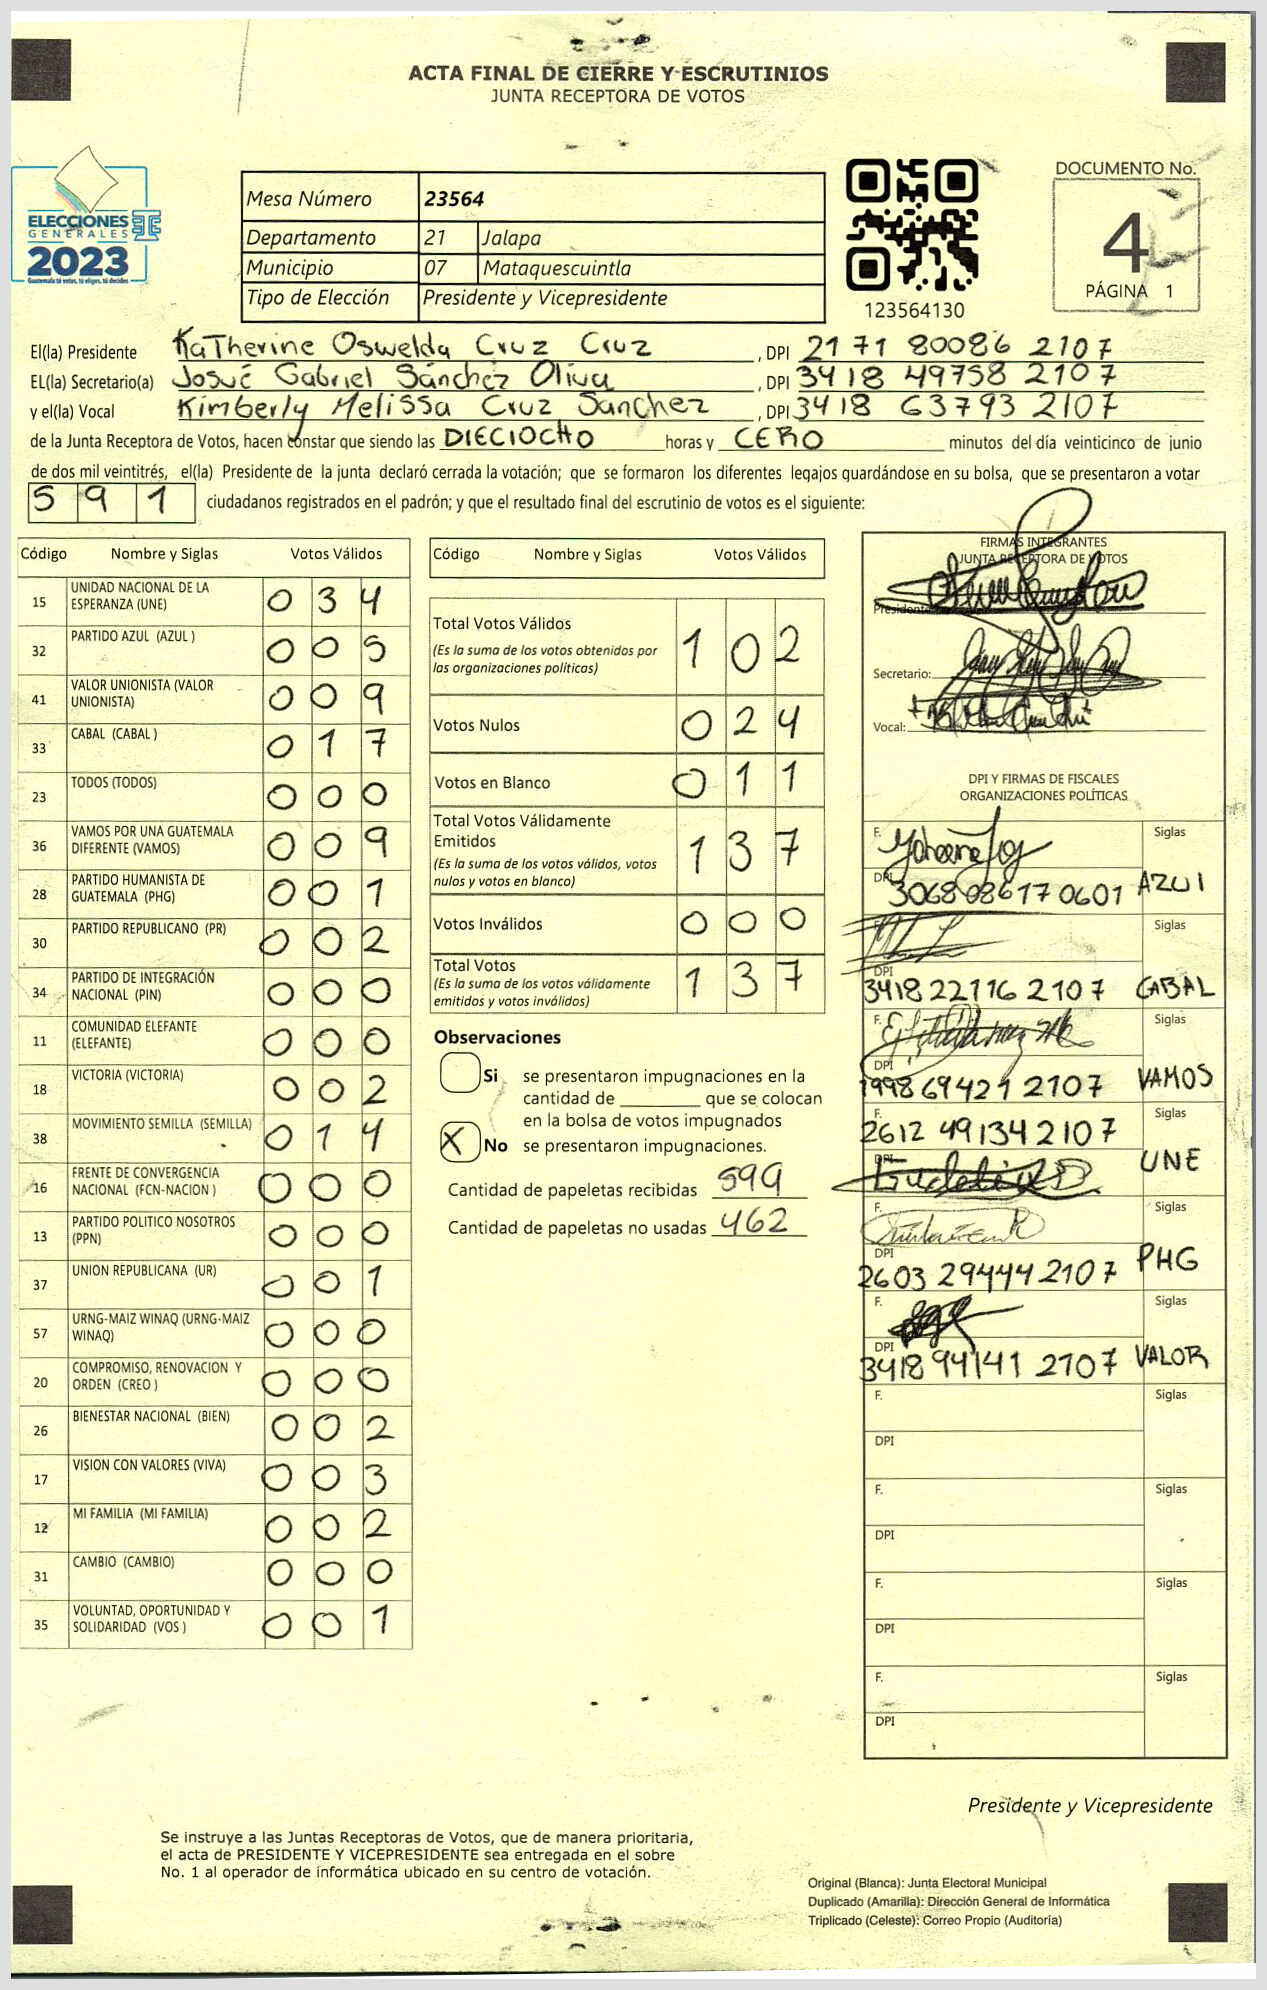 ACTA FINAL DE CIERRE Y ESCRUTINIOS
JUNTA RECEPTORA DE VOTOS
ELECCIONES
GENERALES
2023
Guatemala tú votas, tú eliges, tú decides
Mesa Número 23564
Departamento 21 Jalapa
Municipio 07 Mataquescuintla
Tipo de Elección Presidente y Vicepresidente
123564130
DOCUMENTO No.
4
PÁGINA 1
El(la) Presidente KaTherine Oswelda Cruz Cruz, DPI 2171 80086 2107
EL(la) Secretario(a) Josué Gabriel Sánchez Oliva, DPI 3418 49758 2107
y el(la) Vocal Kimberly Melissa Cruz Sanchez, DPI 3418 63793 2107
de la Junta Receptora de Votos, hacen constar que siendo las DIECIOCHO horas y CERO minutos del día veinticinco de junio
de dos mil veintitrés, el(la) Presidente de la junta declaró cerrada la votación; que se formaron los diferentes legajos guardándose en su bolsa, que se presentaron a votar
591 ciudadanos registrados en el padrón; y que el resultado final del escrutinio de votos es el siguiente:
Código Nombre y Siglas Votos Válidos
15 UNIDAD NACIONAL DE LA ESPERANZA (UNE) 034
32 PARTIDO AZUL (AZUL ) 005
41 VALOR UNIONISTA (VALOR UNIONISTA) 009
33 CABAL (CABAL ) 017
23 TODOS (TODOS) 000
36 VAMOS POR UNA GUATEMALA DIFERENTE (VAMOS) 009
28 PARTIDO HUMANISTA DE GUATEMALA (PHG) 001
30 PARTIDO REPUBLICANO (PR) 002
34 PARTIDO DE INTEGRACIÓN NACIONAL (PIN) 000
11 COMUNIDAD ELEFANTE (ELEFANTE) 000
18 VICTORIA (VICTORIA) 002
38 MOVIMIENTO SEMILLA (SEMILLA) 014
16 FRENTE DE CONVERGENCIA NACIONAL (FCN-NACION ) 000
13 PARTIDO POLITICO NOSOTROS (PPN) 000
37 UNION REPUBLICANA (UR) 001
57 URNG-MAIZ WINAQ (URNG-MAIZ WINAQ) 000
20 COMPROMISO, RENOVACION Y ORDEN (CREO ) 000
26 BIENESTAR NACIONAL (BIEN) 002
17 VISION CON VALORES (VIVA) 003
12 MI FAMILIA (MI FAMILIA) 002
31 CAMBIO (CAMBIO) 000
35 VOLUNTAD, OPORTUNIDAD Y SOLIDARIDAD (VOS ) 001
Código Nombre y Siglas Votos Válidos
Total Votos Válidos 102
(Es la suma de los votos obtenidos por
las organizaciones políticas)
Votos Nulos 024
Votos en Blanco 011
Total Votos Válidamente
Emitidos 137
(Es la suma de los votos válidos, votos
nulos y votos en blanco)
Votos Inválidos 000
Total Votos 137
(Es la suma de los votos válidamente
emitidos y votos inválidos)
Observaciones
Si se presentaron impugnaciones en la
cantidad de ________ que se colocan
en la bolsa de votos impugnados
X No se presentaron impugnaciones.
Cantidad de papeletas recibidas 599
Cantidad de papeletas no usadas 462
FIRMAS INTEGRANTES
JUNTA RECEPTORA DE VOTOS
Presidente:
Secretario:
Vocal:
DPI Y FIRMAS DE FISCALES
ORGANIZACIONES POLÍTICAS
F. Siglas
DPI 3068 08617 0601 AZUl
F. Siglas
DPI 3418 22116 2107 CABAL
F. Siglas
DPI 1998 69421 2107 VAMOS
F. 2612 49134 2107 Siglas
DPI UNE
F. Siglas
DPI 2603 29444 2107 PHG
F. Siglas
DPI 3418 94141 2107 VALOR
F. Siglas
DPI
F. Siglas
DPI
F. Siglas
DPI
F. Siglas
DPI
Presidente y Vicepresidente
Se instruye a las Juntas Receptoras de Votos, que de manera prioritaria,
el acta de PRESIDENTE Y VICEPRESIDENTE sea entregada en el sobre
No. 1 al operador de informática ubicado en su centro de votación.
Original (Blanca): Junta Electoral Municipal
Duplicado (Amarilla): Dirección General de Informática
Triplicado (Celeste): Correo Propio (Auditoría)